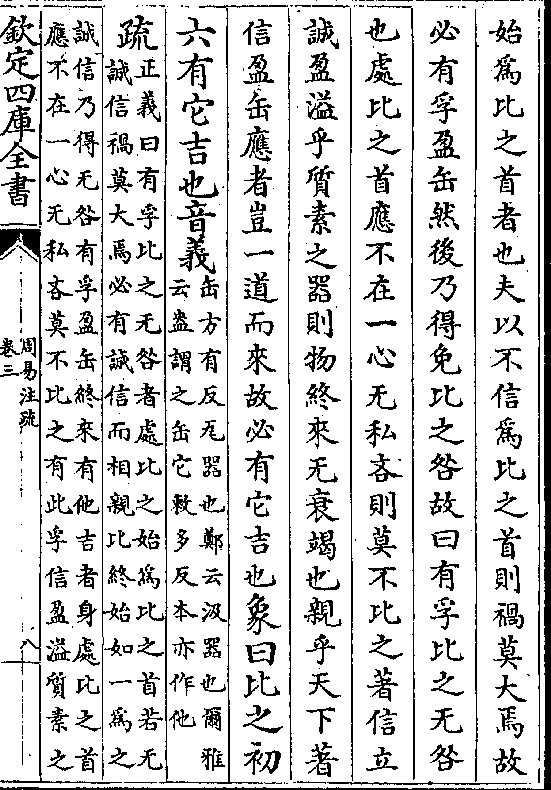 始為比之首者也夫以不信為比之首則禍莫大焉故
必有孚盈缶然後乃得免比之咎故曰有孚比之无咎
也處比之首應不在一心无私吝則莫不比之著信立
誠盈溢乎質素之器則物終來无衰竭也親乎天下著
信盈缶應者豈一道而來故必有它吉也象曰比之初
六有它吉也音義
缶方有反瓦器也鄭云汲器也爾雅
云盎謂之缶它敕多反本亦作他
疏
正義曰有孚比之无咎者處比之始為比之首若无
誠信禍莫大焉必有誠信而相親比終始如一為之
誠信乃得无咎有孚盈缶終來有他吉者身處比之首
應不在一心无私吝莫不比之有此孚信盈溢質素之
欽定四庫全書
周易注疏
卷三
八